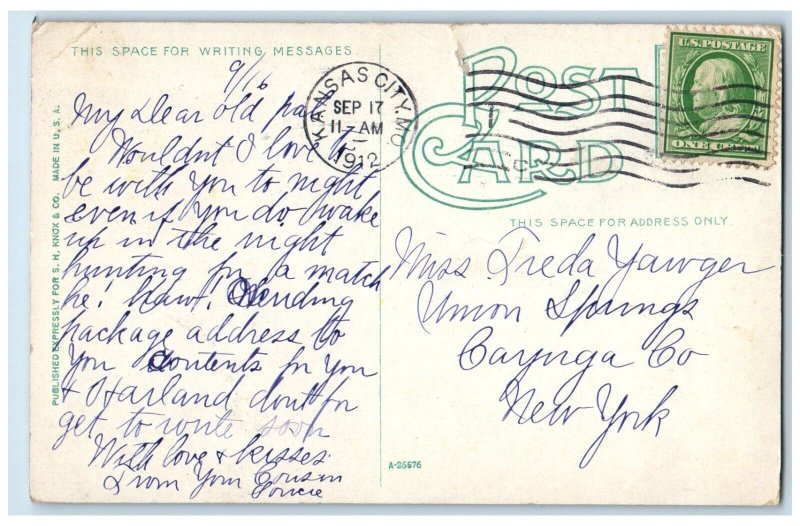 THIS SPACE FOR WRITING MESSAGES
9/16
My Dear old pat
Wouldnt I love to
be with you to night
even if you do wake
up in the night
hunting for a match
he! haw!
Sending
package address to
you contents for you
& Harland dont for
get to write soon
With love & kisses
From Your Cousin
PUBLISHED EXPRESSLY FOR S. H. KNOX & CO. MADE IN U. S. A.
KANSAS CITY, MO.
SEP 17
11-AM
1912
POST
CARD
U.S. POSTAGE
ONE CENT
THIS SPACE FOR ADDRESS ONLY.
Miss Freda Yawger
Union Springs
Cayuga Co
New York
A-25576